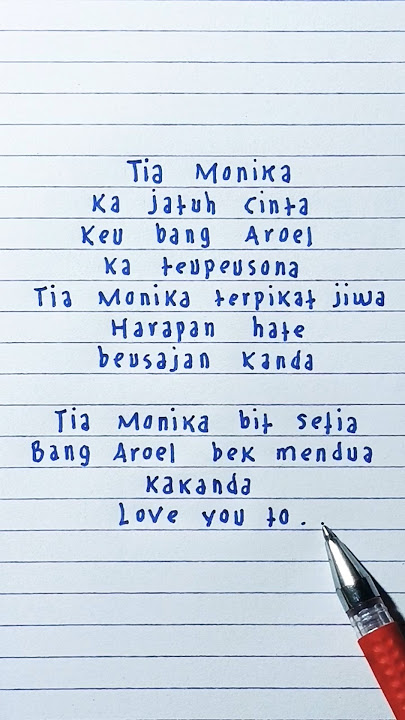 Tia Monika
Ka jatuh cinta
Keu bang Aroel
Ka teupeusona
Tia Monika terpikat jiwa
Harapan hate
beusajan kanda
Tia Monika bit setia
Bang Aroel bek mendua
kakanda
Love you to.